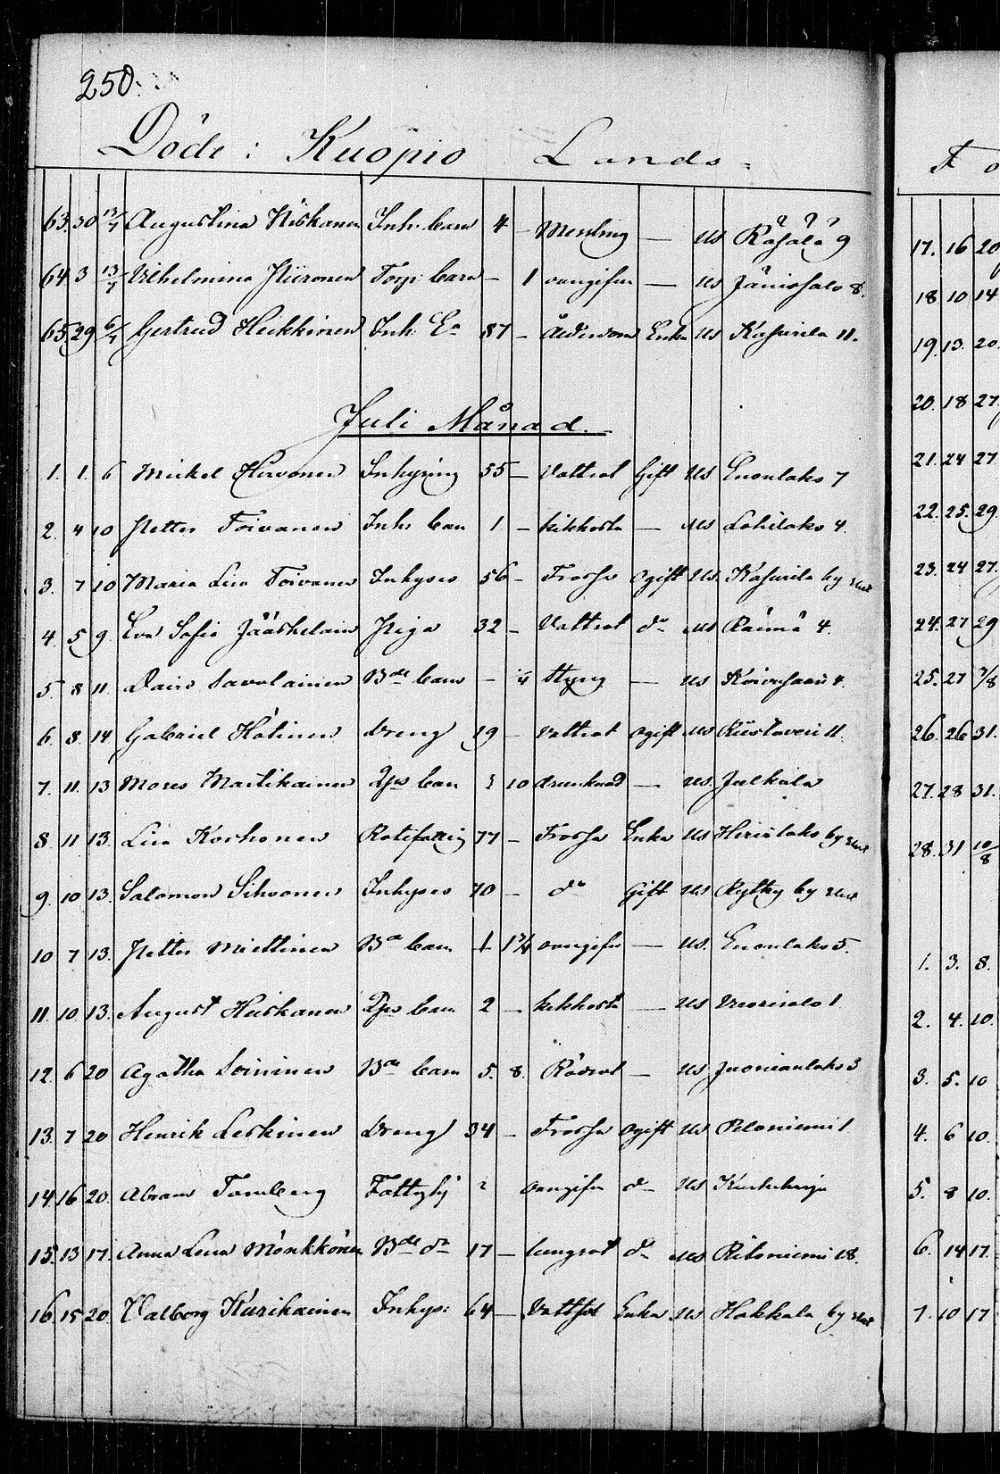 250.
Döde: Kuopio Lands=
63. 30 13/7 Augustina Niskanen Inh. barn 4 - Messling — us Räsälä 9
64 3 13/7 Vilhelmina Hiironen Torp. barn - 1 oangifven — us Jänissalo 8.
65. 29 6/7 Gertrud Heikkinen Inh. Ea 87 - Ålderdom Enka us Kasurila 11.
Juli Månad.
1. 1. 6 Mickel Hirvonen Inhysing 55 — Vattsot Gift us Enonlaks 7
2. 4 10 Petter Toivanen Inhs barn 1 - kikhosta — us Lohilaks 4.
3. 7 10 Maria Lisa Toivanen Inhyses 56 - Frossa ogift us Kasurila by
4 5 9. Eva Sofia Jääskelain Piga 32 - Vattsot do us Räimä 4.
5. 8 11. savolainen Bde barn - Styng — us Koivusaari 4.
6. 8. 14 Gabriel Hätinen dreng 19 - vattsot ogift us Ristaveri 11.
7. 11. 13 Moses Martikainen barn 3 10 drunknad — us. Julkula
8. 11 13. Lisa Korhonen Rotefattig 77 - Frossa Enka us by
9. 10 13. Salomon Sihvonen Inhyses 70 - do Gift us by
10. 7 13. Petter Miettinen Bde barn oangifv — us. Enonlaks 5.
11. 10. 13. August Heiskanen barn 2 - kikhosta — us
12. 6 20 Agatha Soininen Bde barn 5. 8. Rödsot — us 3
13. 7 20 Henrik Leskinen dreng 34 - Frossa ogift us 1
14 16 20. Abram Tornberg Fattighj ? oangifv do us
15. 13 17. Anna Lena Mönkkönen Bde do 17 - lungsot do us Ritoniemi 18.
16 15 20. Valborg Kurikainen Inhys: 64 - Vattsot Enka us Hakkala by
F
17. 16 20
18 10 14
19. 13. 20.
20. 18 27
21. 24 27
22. 25. 29
23. 24 27.
24. 27 29
25. 27 7/8
26. 26 31.
27. 28 31.
28. 31 10/8
1. 3. 8.
2. 4. 10.
3. 5. 10
4. 6 10.
5. 8 10.
6. 14 17.
7. 10 17